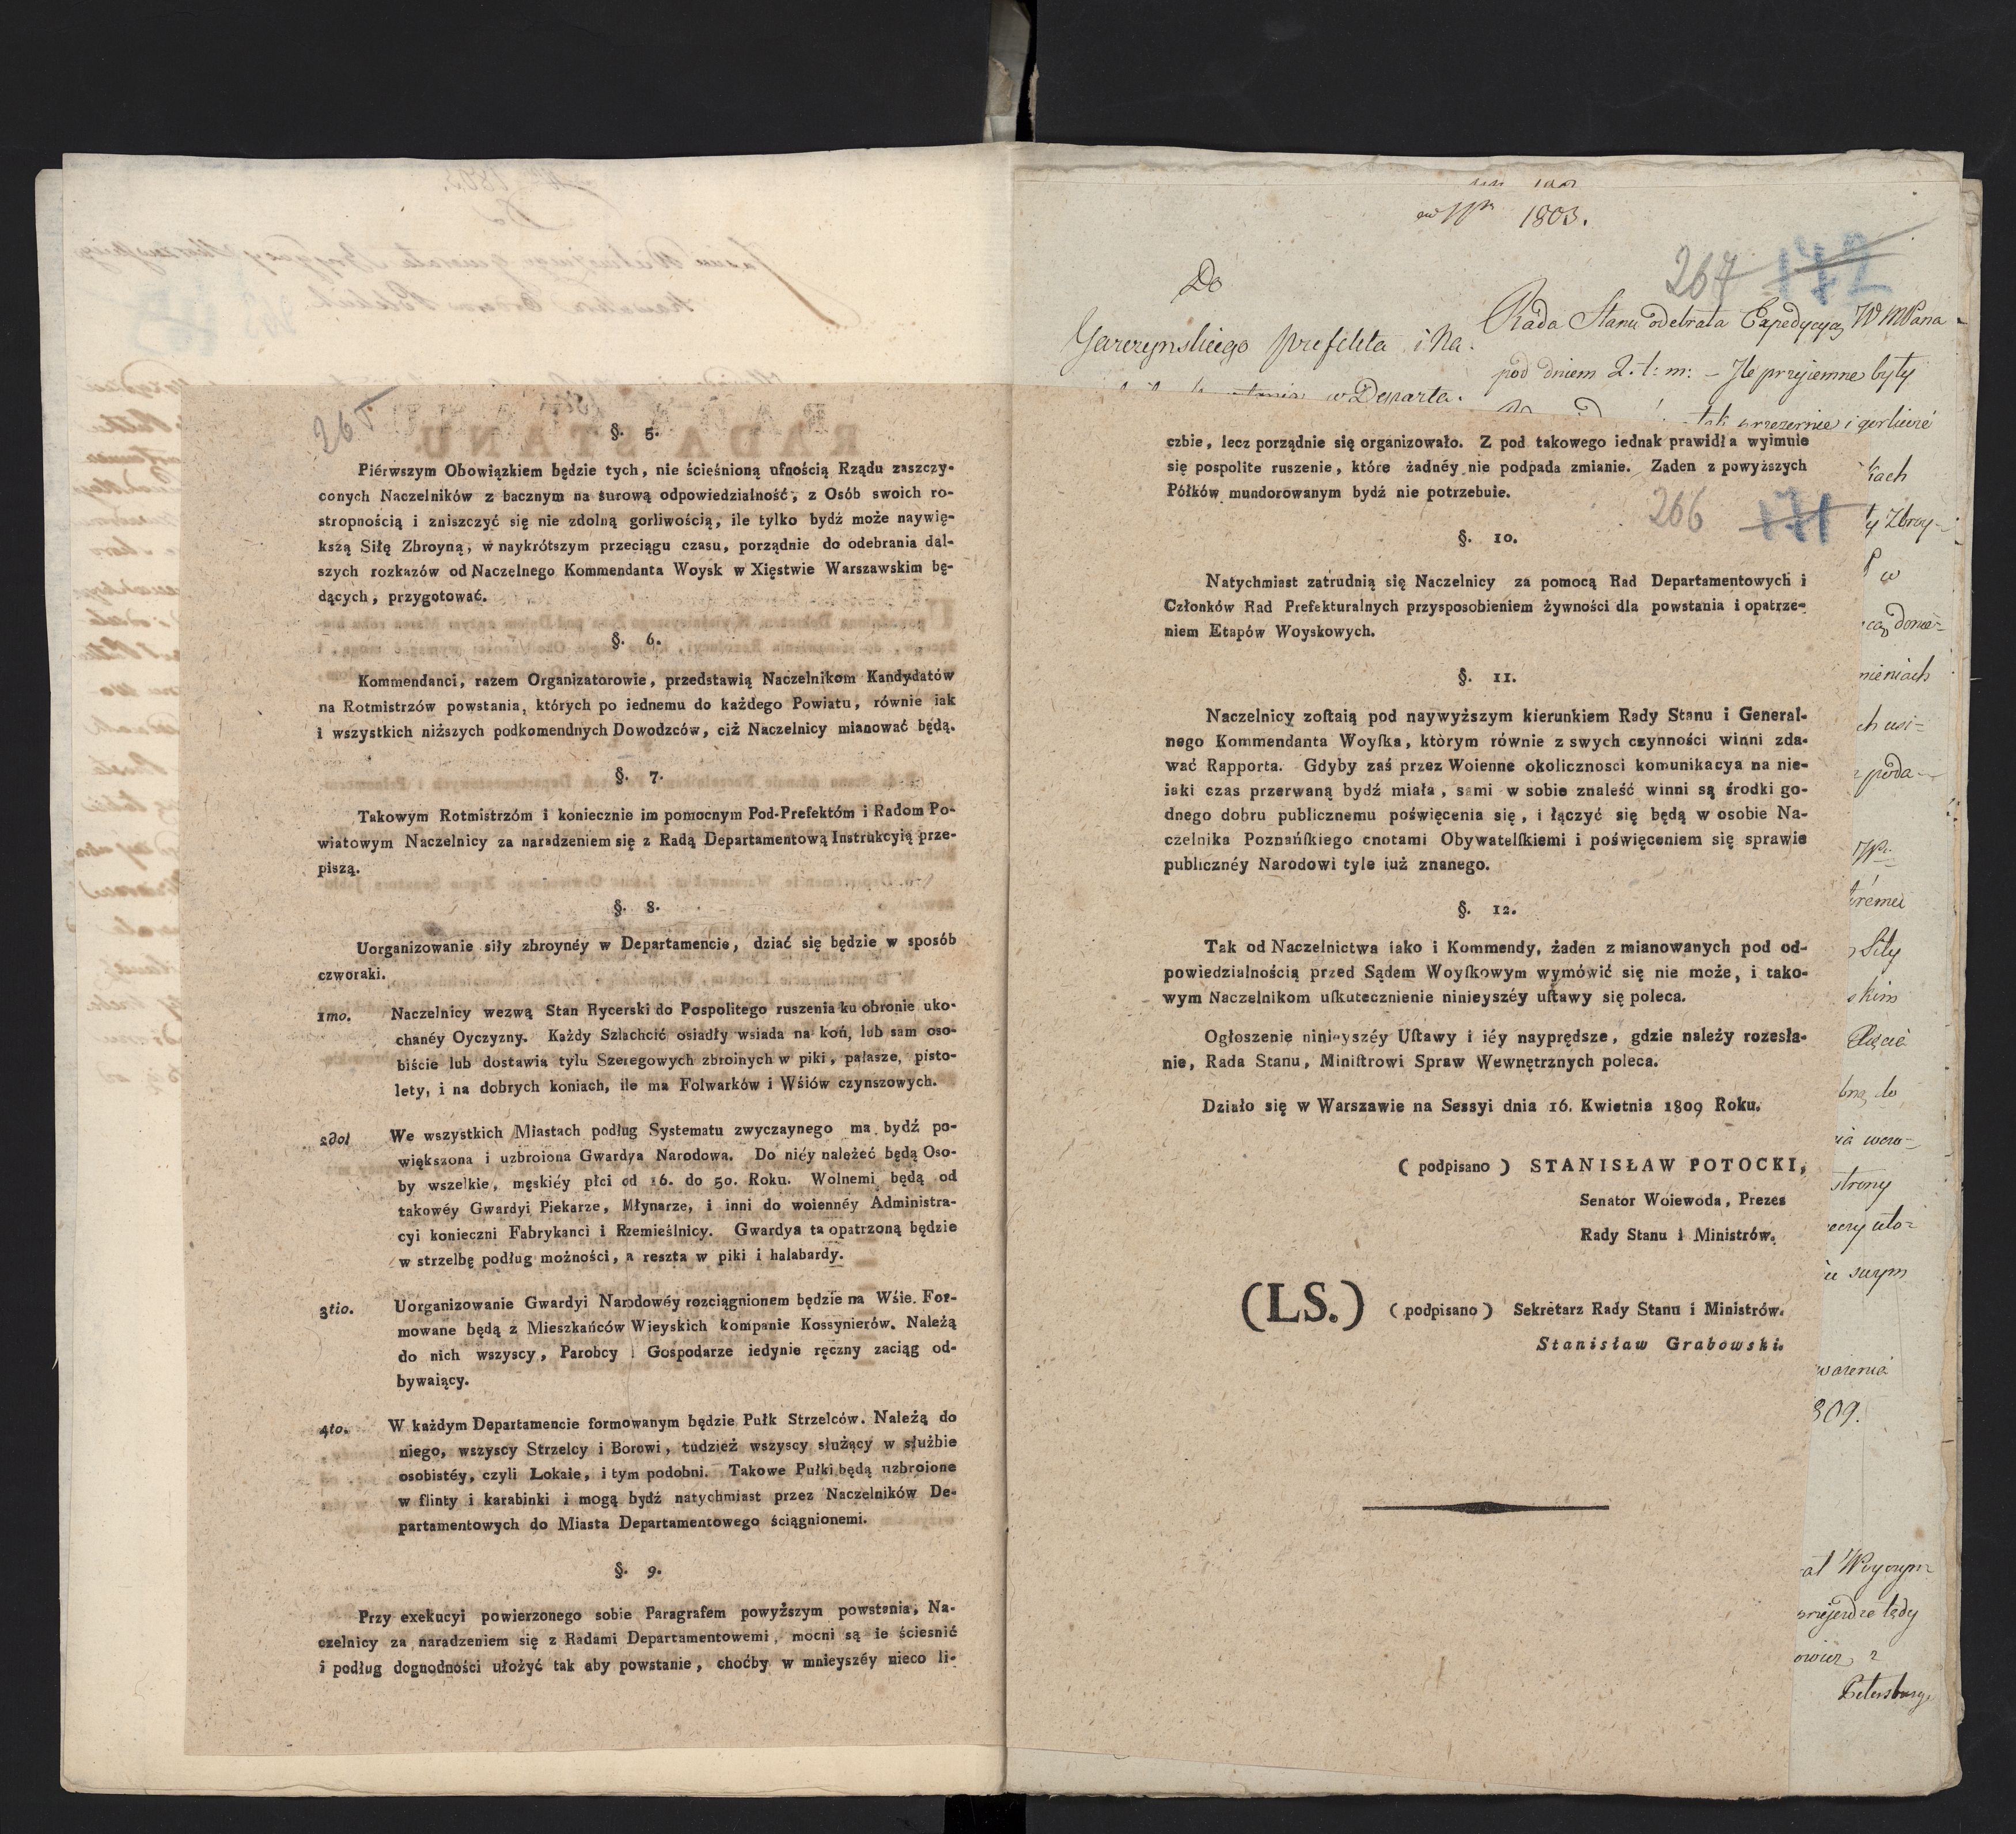 265
§. 5.
Piérwszym Obowiązkiem będzie tych, nie ścieśnioną ufnością Rządu zaszczy-
conych Naczelników z bacznym na surową odpowiedzialność, z Osób swoich ro-
stropnością i zniszczyć się nie zdolną gorliwością, ile tylko bydź może naywię-
kszą Siłę Zbroyną, w naykrótszym przeciągu czasu, porządnie do odebrania dal-
szych rozkazów od Naczelnego Kommendanta Woysk w Xięstwie Warszawskim bę-
dących, przygotować.
§. 6.
Kommendanci, razem Organizatorowie, przedstawią Naczelnikom Kandydatów
na Rotmistrzów powstania, których po iednemu do każdego Powiatu, równie iak
i wszystkich niższych podkomendnych Dowodzców, ciż Naczelnicy mianować będą.
§. 7.
Takowym Rotmistrzóm i koniecznie im pomocnym Pod-Prefektóm i Radom Po-
wiatowym Naczelnicy za naradzeniem się z Radą Departamentową Instrukcyią prze-
piszą.
§. 8.
Uorganizowanie siły zbroynéy w Departamencie, dziać się będzie w sposób
czworaki.
1mo. Naczelnicy wezwą Stan Rycerski do Pospolitego ruszenia ku obronie uko-
chanéy Oyczyzny. Każdy Szlachcić osiadły wsiada na koń, lub sam oso-
biście lub dostawia tylu Szeregowych zbroinych w piki, pałasze, pisto-
lety, i na dobrych koniach, ile ma Folwarków i Wśiów czynszowych.
2do We wszystkich Miastach podług Systematu zwyczaynego ma bydź po-
większona i uzbroiona Gwardya Narodowa. Do niéy należeć będą Oso-
by wszelkie, męskiéy płci od 16. do 50. Roku. Wolnemi będą od
takowéy Gwardyi Piekarze, Młynarze, i inni do woiennéy Administra-
cyi konieczni Fabrykanci i Rzemieślnicy. Gwardya ta opatrzoną będzie
w strzelbę podług możności, a reszta w piki i halabardy.
3tio. Uorganizowanie Gwardyi Narodowéy rozciągnionem będzie na Wśie. For-
mowane będą z Mieszkańców Wieyskich kompanie Kossynierów. Należą
do nich wszyscy, Parobcy i Gospodarze iedynie ręczny zaciąg od-
bywaiący.
4to. W każdym Departamencie formowanym będzie Pułk Strzelców. Należą do
niego, wszyscy Strzelcy i Borowi, tudzież wszyscy służący w służbie
osobistéy, czyli Lokaie, i tym podobni. Takowe Pułki będą uzbroione
w flinty i karabinki i mogą bydź natychmiast przez Naczelników De-
partamentowych do Miasta Departamentowego ściągnionemi.
§. 9.
Przy exekucyi powierzonego sobie Paragrafem powyższym powstania, Na-
czelnicy za naradzeniem się z Radami Departamentowemi, mocni są ie ściesnić
i podług dognodności ułożyć tak aby powstanie, choćby w mnieyszéy nieco li-
1803.
267 172
Do
Rada Stanu odebrała Expedycyą WMPana
Garczynskiego Prefekta i Na-
pod dniem 2. t: m: - Ile przyiemne były
w Departa-
i gorliwie
czbie, lecz porządnie się organizowało. Z pod takowego iednak prawidła wyimuie
się pospolite ruszenie, które żadnéy nie podpada zmianie. Zaden z powyższych
Półków mundorowanym bydź nie potrzebuie.
266 171
§. 10.
Natychmiast zatrudnią się Naczelnicy za pomocą Rad Departamentowych i
Członków Rad Prefekturalnych przysposobieniem żywności dla powstania i opatrze-
niem Etapów Woyskowych.
§. 11.
Naczelnicy zoſtaią pod naywyższym kierunkiem Rady Stanu i General-
nego Kommendanta Woyſka, którym równie z swych czynności winni zda-
wać Rapporta. Gdyby zaś przez Woienne okoliczności komunikacya na nie-
iaki czas przerwaną bydź miała, sami w sobie znaleść winni są środki go-
dnego dobru publicznemu poświęcenia się, i łączyć się będą w osobie Na-
czelnika Poznańſkiego cnotami Obywatelſkiemi i poświęceniem się sprawie
publicznéy Narodowi tyle iuż znanego.
§. 12.
Tak od Naczelnictwa iako i Kommendy, żaden z mianowanych pod od-
powiedzialnością przed Sądem Woyſkowym wymówić się nie może, i tako-
wym Naczelnikom uſkutecznienie ninieyszéy uſtawy się poleca.
Ogłoszenie ninieyszéy Uſtawy i iéy nayprędsze, gdzie należy rozesła-
nie, Rada Stanu, Miniſtrowi Spraw Wewnętrznych poleca.
Działo się w Warszawie na Sessyi dnia 16. Kwietnia 1809 Roku.
( podpisano ) STANISŁAW POTOCKI,
Senator Woiewoda, Prezes
Rady Stanu i Ministrów.
(LS.) ( podpisano ) Sekretarz Rady Stanu i Ministrów.
Stanisław Grabowski.
809.
Petersburg